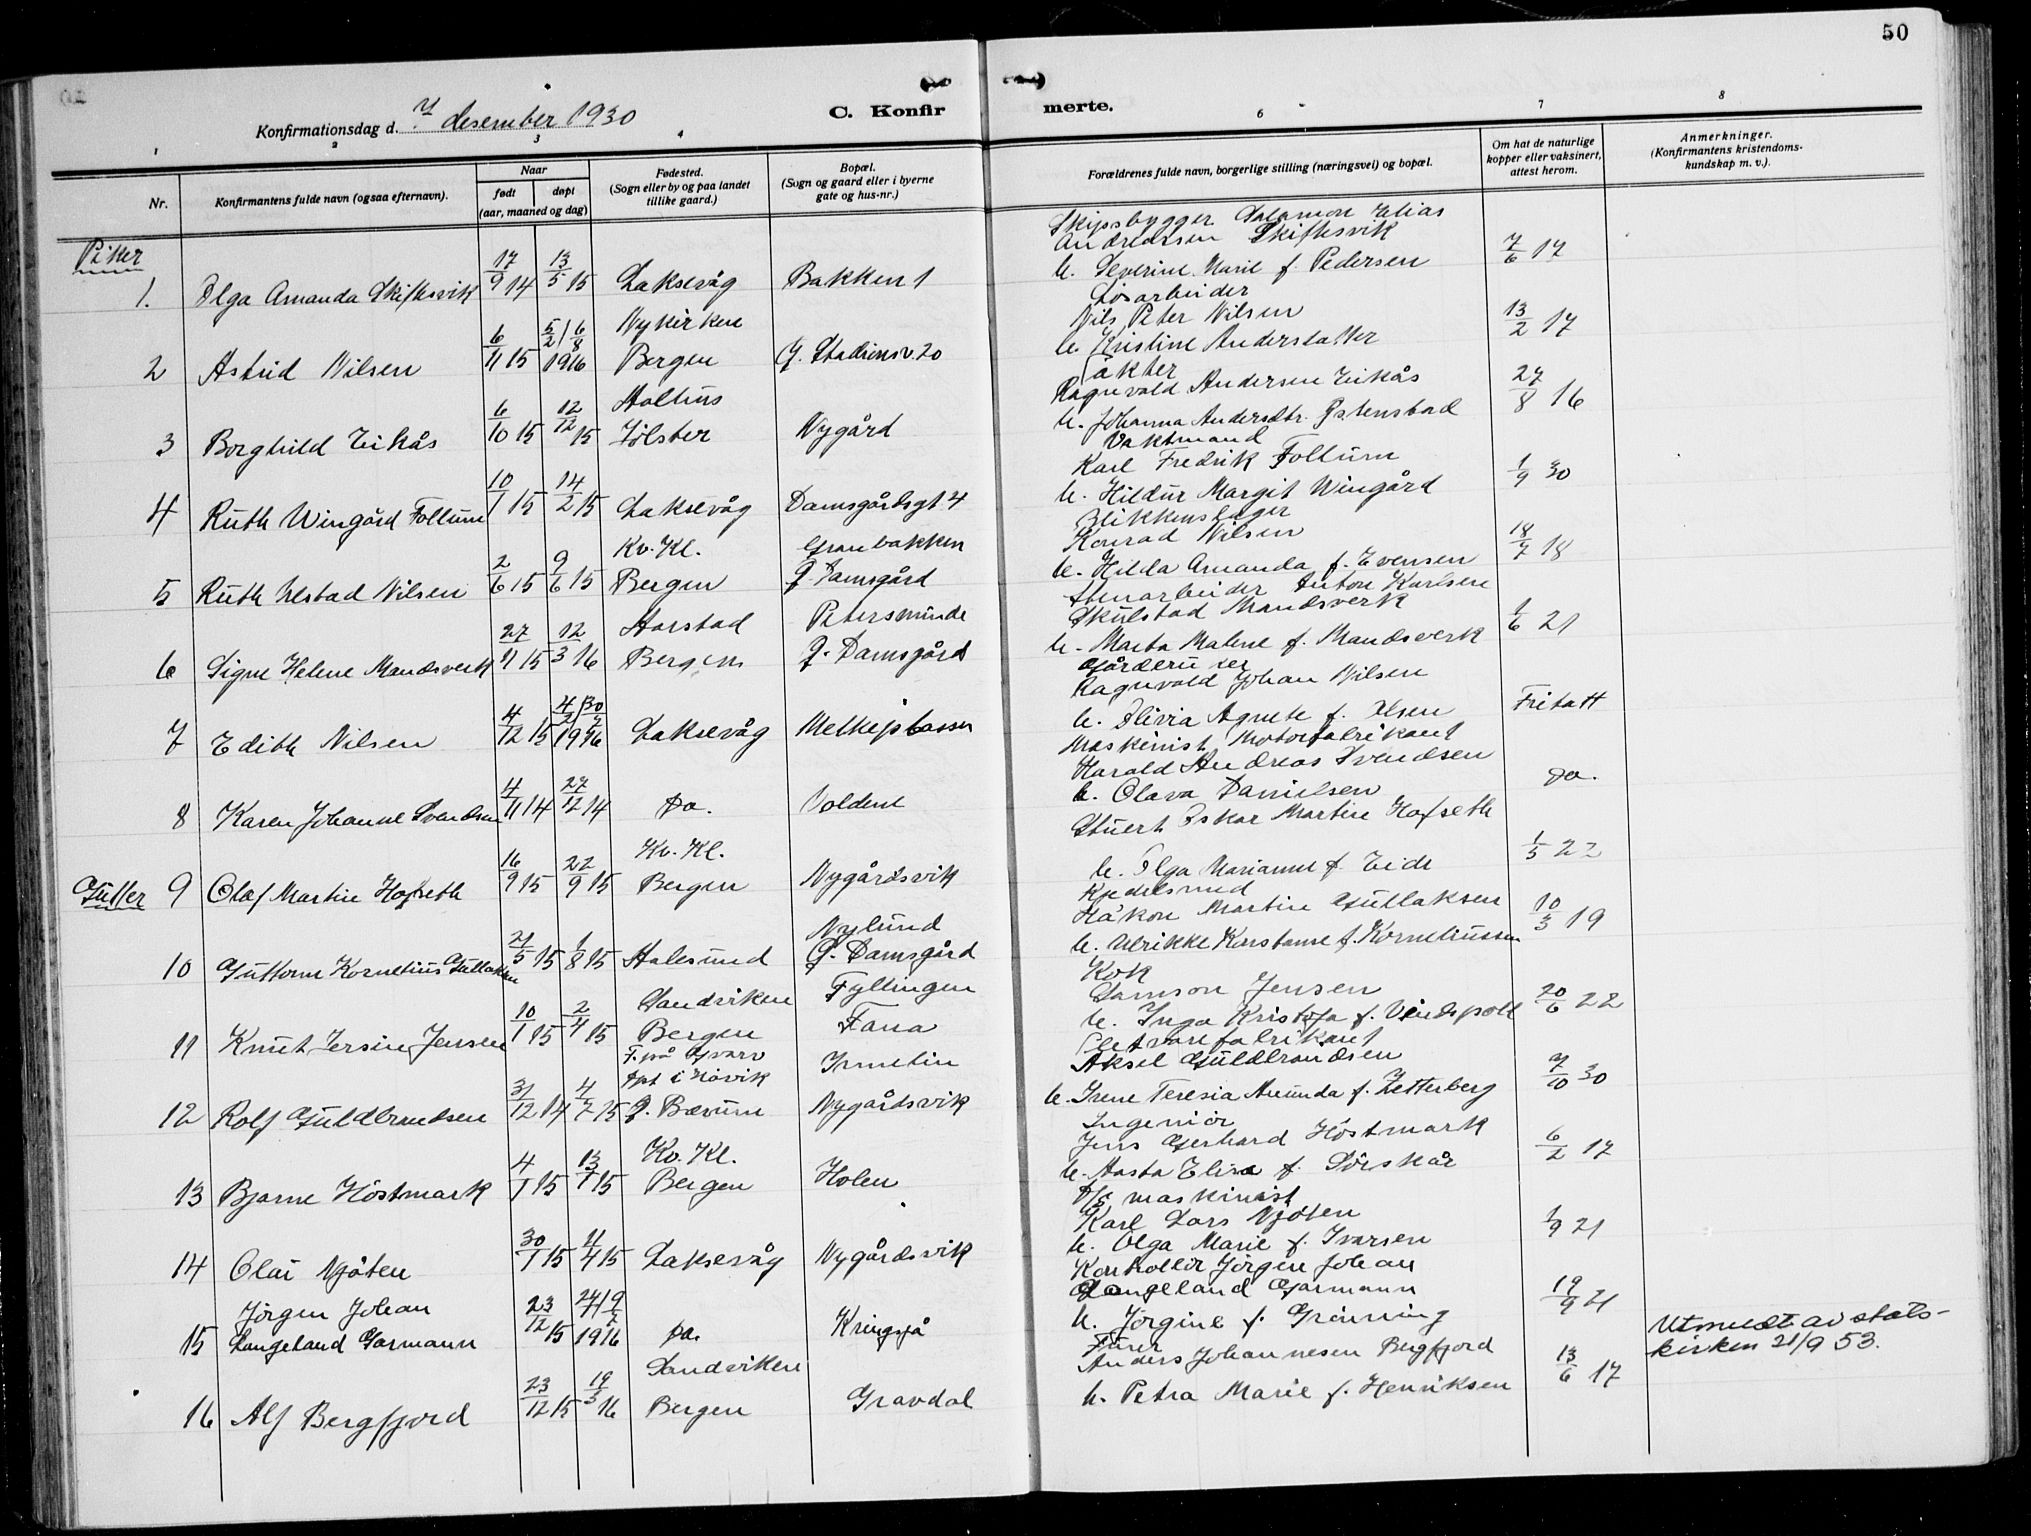 50
Konfirmationsdag d. 7 desember 1930
C. Konfirmerte.
1 2 3 4 6 7 8
Nr.
Konfirmantens fulde navn (ogsaa efternavn).
Naar
født døpt
(aar, maaned og dag)
Fødested.
(Sogn eller by og paa landet
tillike gaard.)
Bopæl.
(Sogn og gaard eller i byerne
gate og hus-nr.)
Forældrenes fulde navn, borgerlige stilling (næringsvei) og bopæl.
Om hat de naturlige
kopper eller vaksinert,
attest herom.
Anmerkninger.
(Konfirmantens kristendoms-
kundskap m. v.).
Piker
1. Olga Amanda Skiftesvik 17/9 14 13/5 15 Laksevåg Bakken 1
Skipsbygger Salamon Elias
Andreassen Skiftesvik
h. Severine Marie f. Pedersen 7/6 17
2 Astrid Nilsen 6/11 15 5/2 / 6/8 1916 Nykirken
Bergen G. Stadionsv. 20
Løsarbeider
Nils Peter Nilsen
h. Kristine Andersdatter 13/2 17
3 Borghild Eikås 6/10 15 12/12 15 Holhus
Jölster Nygård
Ragnvald Andersen Eikås
h. Johanna Andersdtr. Østenstad 27/8 16
4 Ruth Wingård Follum 10/1 15 14/2 15 Laksevåg Damsgårdsgt 4
Vaktmand
Karl Fredrik Follum
h. Hildur Margit Wingård 1/9 30
5 Ruth Ulstad Nilsen 2/6 15 9/6 15 Kv. Kl.
Bergen Granbakken
G. Damsgård
Blikkenslager
Konrad Nilsen
h. Hilda Amanda f. Evensen 18/7 18
6 Signe Helene Mandsverk 27/11 15 12/3 16 Aarstad
Bergen Petersminde
G. Damsgård
Stenarbeider Anton Karlsen
Skulstad Mandsverk
h. Marta Malene f. Mandsverk 1/6 21
7 Edith Nilsen 4/12 15 4/2 / 30/7 1916 Laksevåg Melkeplassen
Ragnvald Johan Nilsen
h. Olivia Agnete f. Olsen Fritatt
8 Karen Johanne Svendsen 4/11 14 27/12 14 Do. Voldene
Maskinist, Motorfabrikant
Harald Andreas Svendsen
h. Olava Danielsen Do.
Gutter
9 Olaf Martin Hofseth 16/9 15 22/9 15 Kv. Kl.
Bergen Nygårdsvik
Stuert Oskar Martin Hofseth
h. Olga Marianne f. Eide 1/5 22
10 Guttorm Kornelius Gullaksen 21/5 15 1/8 15 Aalesund Nylund
G. Damsgård
Kjedelsmed
Håkon Martin Gullaksen
h. Ulrikke Konstanse f. Korneliussen 10/3 19
11 Knut Jersin Jensen 10/1 15 2/4 15 Sandviken
Bergen Fyllingen
Fana
Kok
Samson Jensen
h. Inga Kristofa f. Vindspoll 20/6 22
12 Rolf Guldbrandsen 31/12 14 4/7 15 F. på Gvarv
dpt i Høvik
G. Bærum Irmelin
Nygårdsvik
Aksel Guldbrandsen
h. Irene Teresia Amunda f. Zetterberg 7/10 30
13 Bjarne Höstmark 4/1 15 13/1 15 Kv. Kl.
Bergen Holen
Ingeniør
Jens Gerhard Höstmark
h. Aasta Elisa f. Sörskår 6/2 17
14 Olai Njåten 30/1 15 11/4 15 Laksevåg Nygårdsvik
D/S maskinist
Karl Lars Njåten
h. Olga Marie f. Ivarsen 1/9 21
15 Jörgen Johan
Langeland Garmann 23/12 15 24/1 / 9/7 1916 Do. Kringsjå
Kontrollör Jörgen Johan
Langeland Garmann
h. Jörgine f. Grönning 19/9 21
Utmeldt av stats-
kirken 21/9 53.
16 Alf Bergfjord 23/12 15 19/3 16 Sandviken
Bergen Gravdal
Fører
Anders Johannesen Bergfjord
h. Petra Marie f. Henriksen 13/6 17